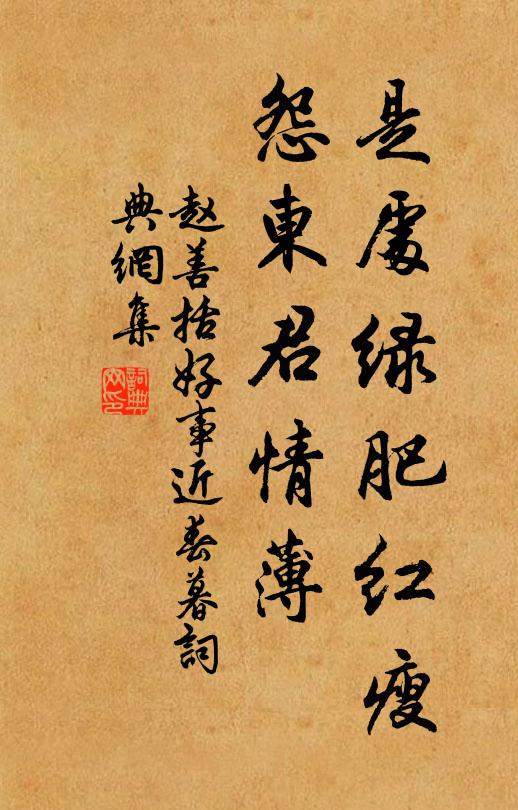 是處绿肥红瘦
怨東君情薄
赵善括好事近春暮詞
典網集
詞典网印